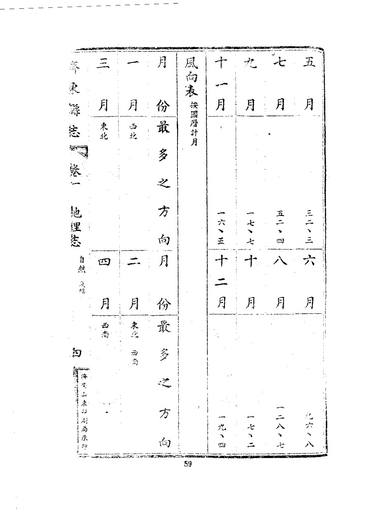 五月 三二、三 六月 九六、八
七月 五二、四 八月 一二八、七
九月 一七、七 十月 一七、二
十一月 一六、五 十二月 一九、四
風向表 按國曆計月
月份 最多之方向 月份 最多之方向
一月 西北 二月 東北 西南
三月 東北 四月 西南
齊東縣志 卷一 地理志 自然 四
59